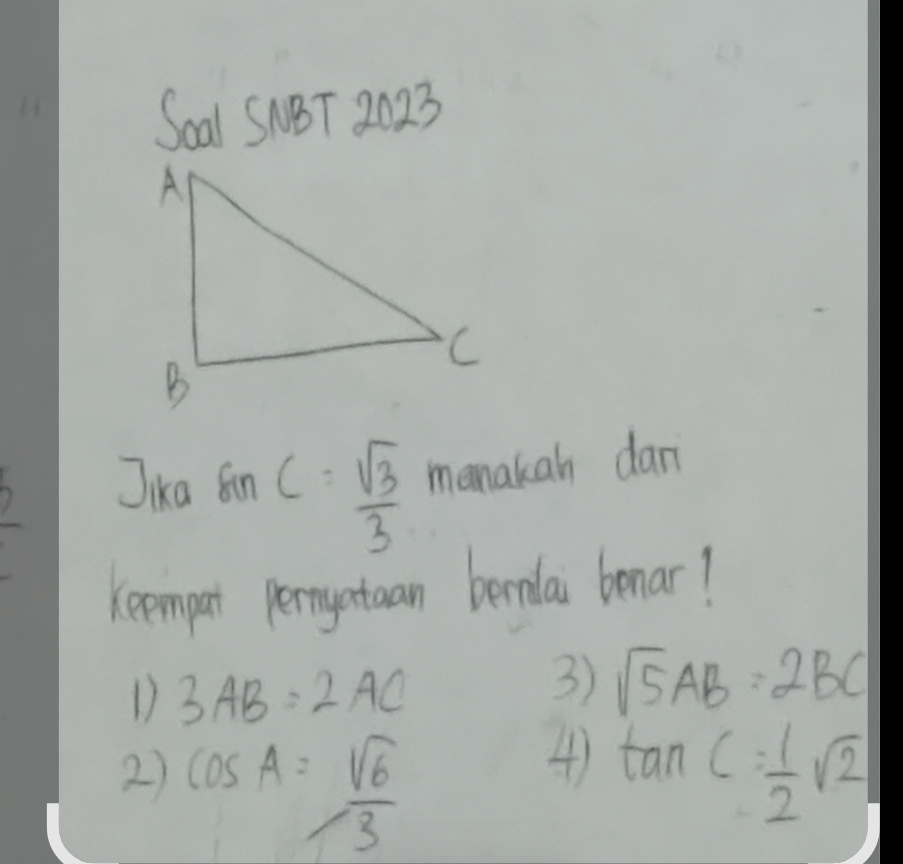 Soal SNBT 2023
A
B
C
Jika sin C = √3/3 manakah dari
keempat pernyataan bernilai benar!
1) 3AB = 2AC
2) cos A = √6/3
3) √5AB = 2BC
4) tan C = 1/2 √2